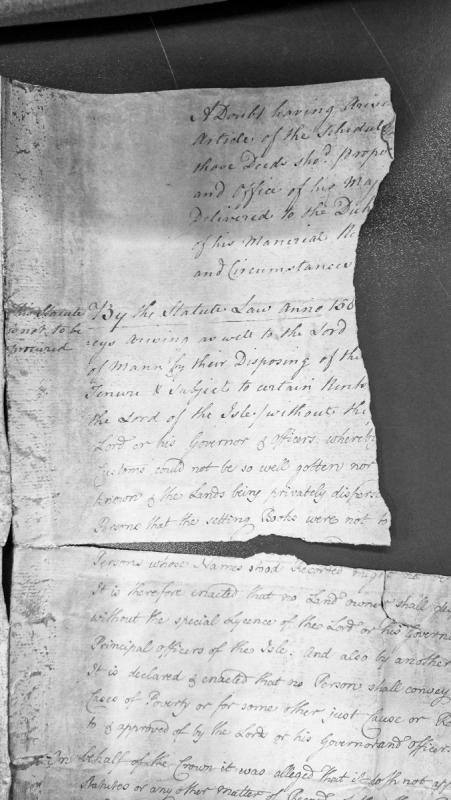 A Doubt having Arisen
Article of the Schedule
those Deeds sho.d prope
and Office of his Maj
Delivered to the Duk
of his Manerial R
and Circumstances
This Statute
is not to be
procured
By the Statute Law Anno 156
eys Arising as well to the Lord
of Mann by their Disposing of the
Tenure & Subject to certain Rents
the Lord of the Isle / without the
Lord or his Governor & officers. whereby
Customs could not be so well gotten nor
known & the Lands being privately dispers
Persons that the setting Books were not to
Persons whose Names stood Recorded might
It is therefore enacted that no Land owner shall
without the special Lycence of the Lord or his Governo
Principal officers of the Isle: And also by another
It is declared & enacted that no Person shall convey
Cases of Poverty or for some other just Cause or Re
to & approved of by the Lord or his Governor and officers.
In behalf of the Crown it was alleged that it doth not app
Statutes or any other matter of Record